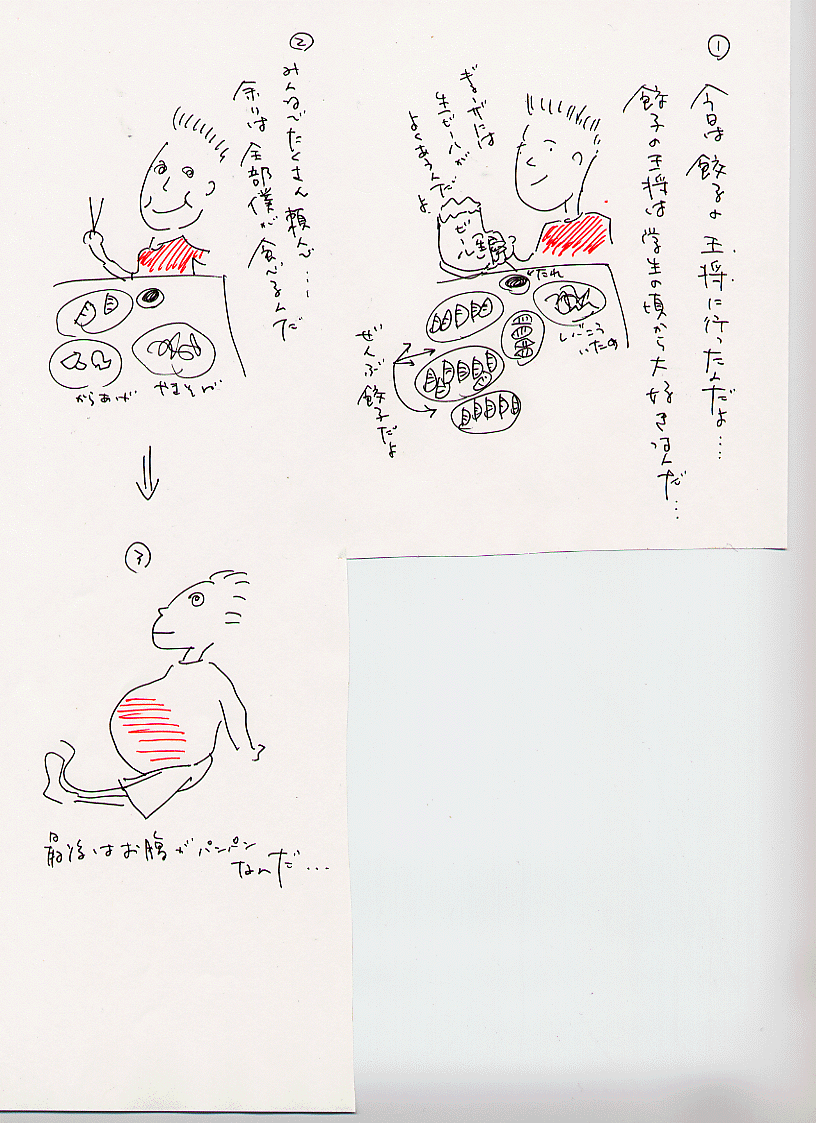 ①
今日は餃子の王将に行ったんだよ…
餃子の王将は学生の頃から大好きなんだ…
ぎょーザには
生ビールが
よくあうんだ
よ
ビール
たれ
いため
ぜんぶ餃子だよ
②
みんなでたくさん頼んで…
余りは全部僕が食べるんだ
からあげ
やきそば
③
最後はお腹がパンパン
なんだ…